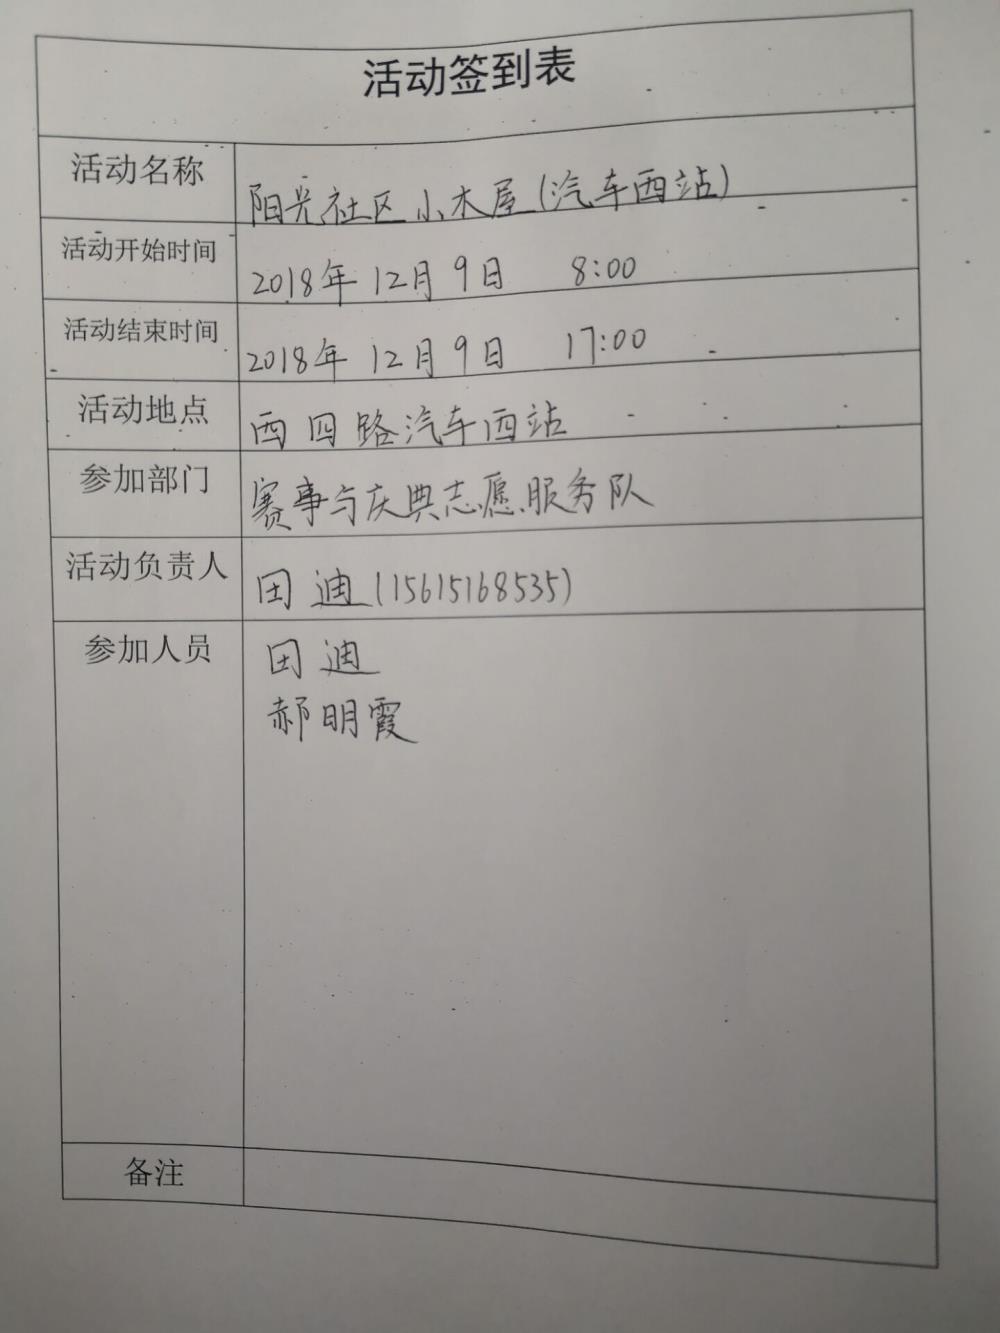 活动签到表
活动名称 阳光社区小木屋(汽车西站)
活动开始时间 2018年12月9日 8:00
活动结束时间 2018年12月9日 17:00
活动地点 西四路汽车西站
参加部门 赛事与庆典志愿服务队
活动负责人 田迪(15615168535)
参加人员 田迪
郝明霞
备注